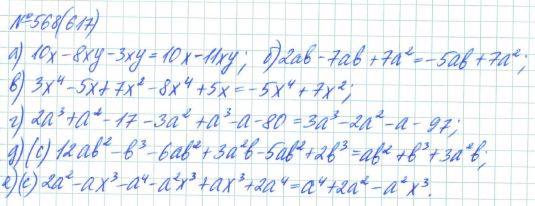 №568(617)
а) 10x-8xy-3xy=10x-11xy; б) 2ab-7ab+7a²=-5ab+7a²;
в) 3x⁴-5x+7x²-8x⁴+5x=-5x⁴+7x²;
г) 2a³+a²-17-3a²+a³-a-80=3a³-2a²-a-97;
д)(с) 12ab²-b³-6ab²+3a²b-5ab²+2b³=ab²+b³+3a²b;
е)(с) 2a²-ax³-a⁴-a²x³+ax³+2a⁴=a⁴+2a²-a²x³.